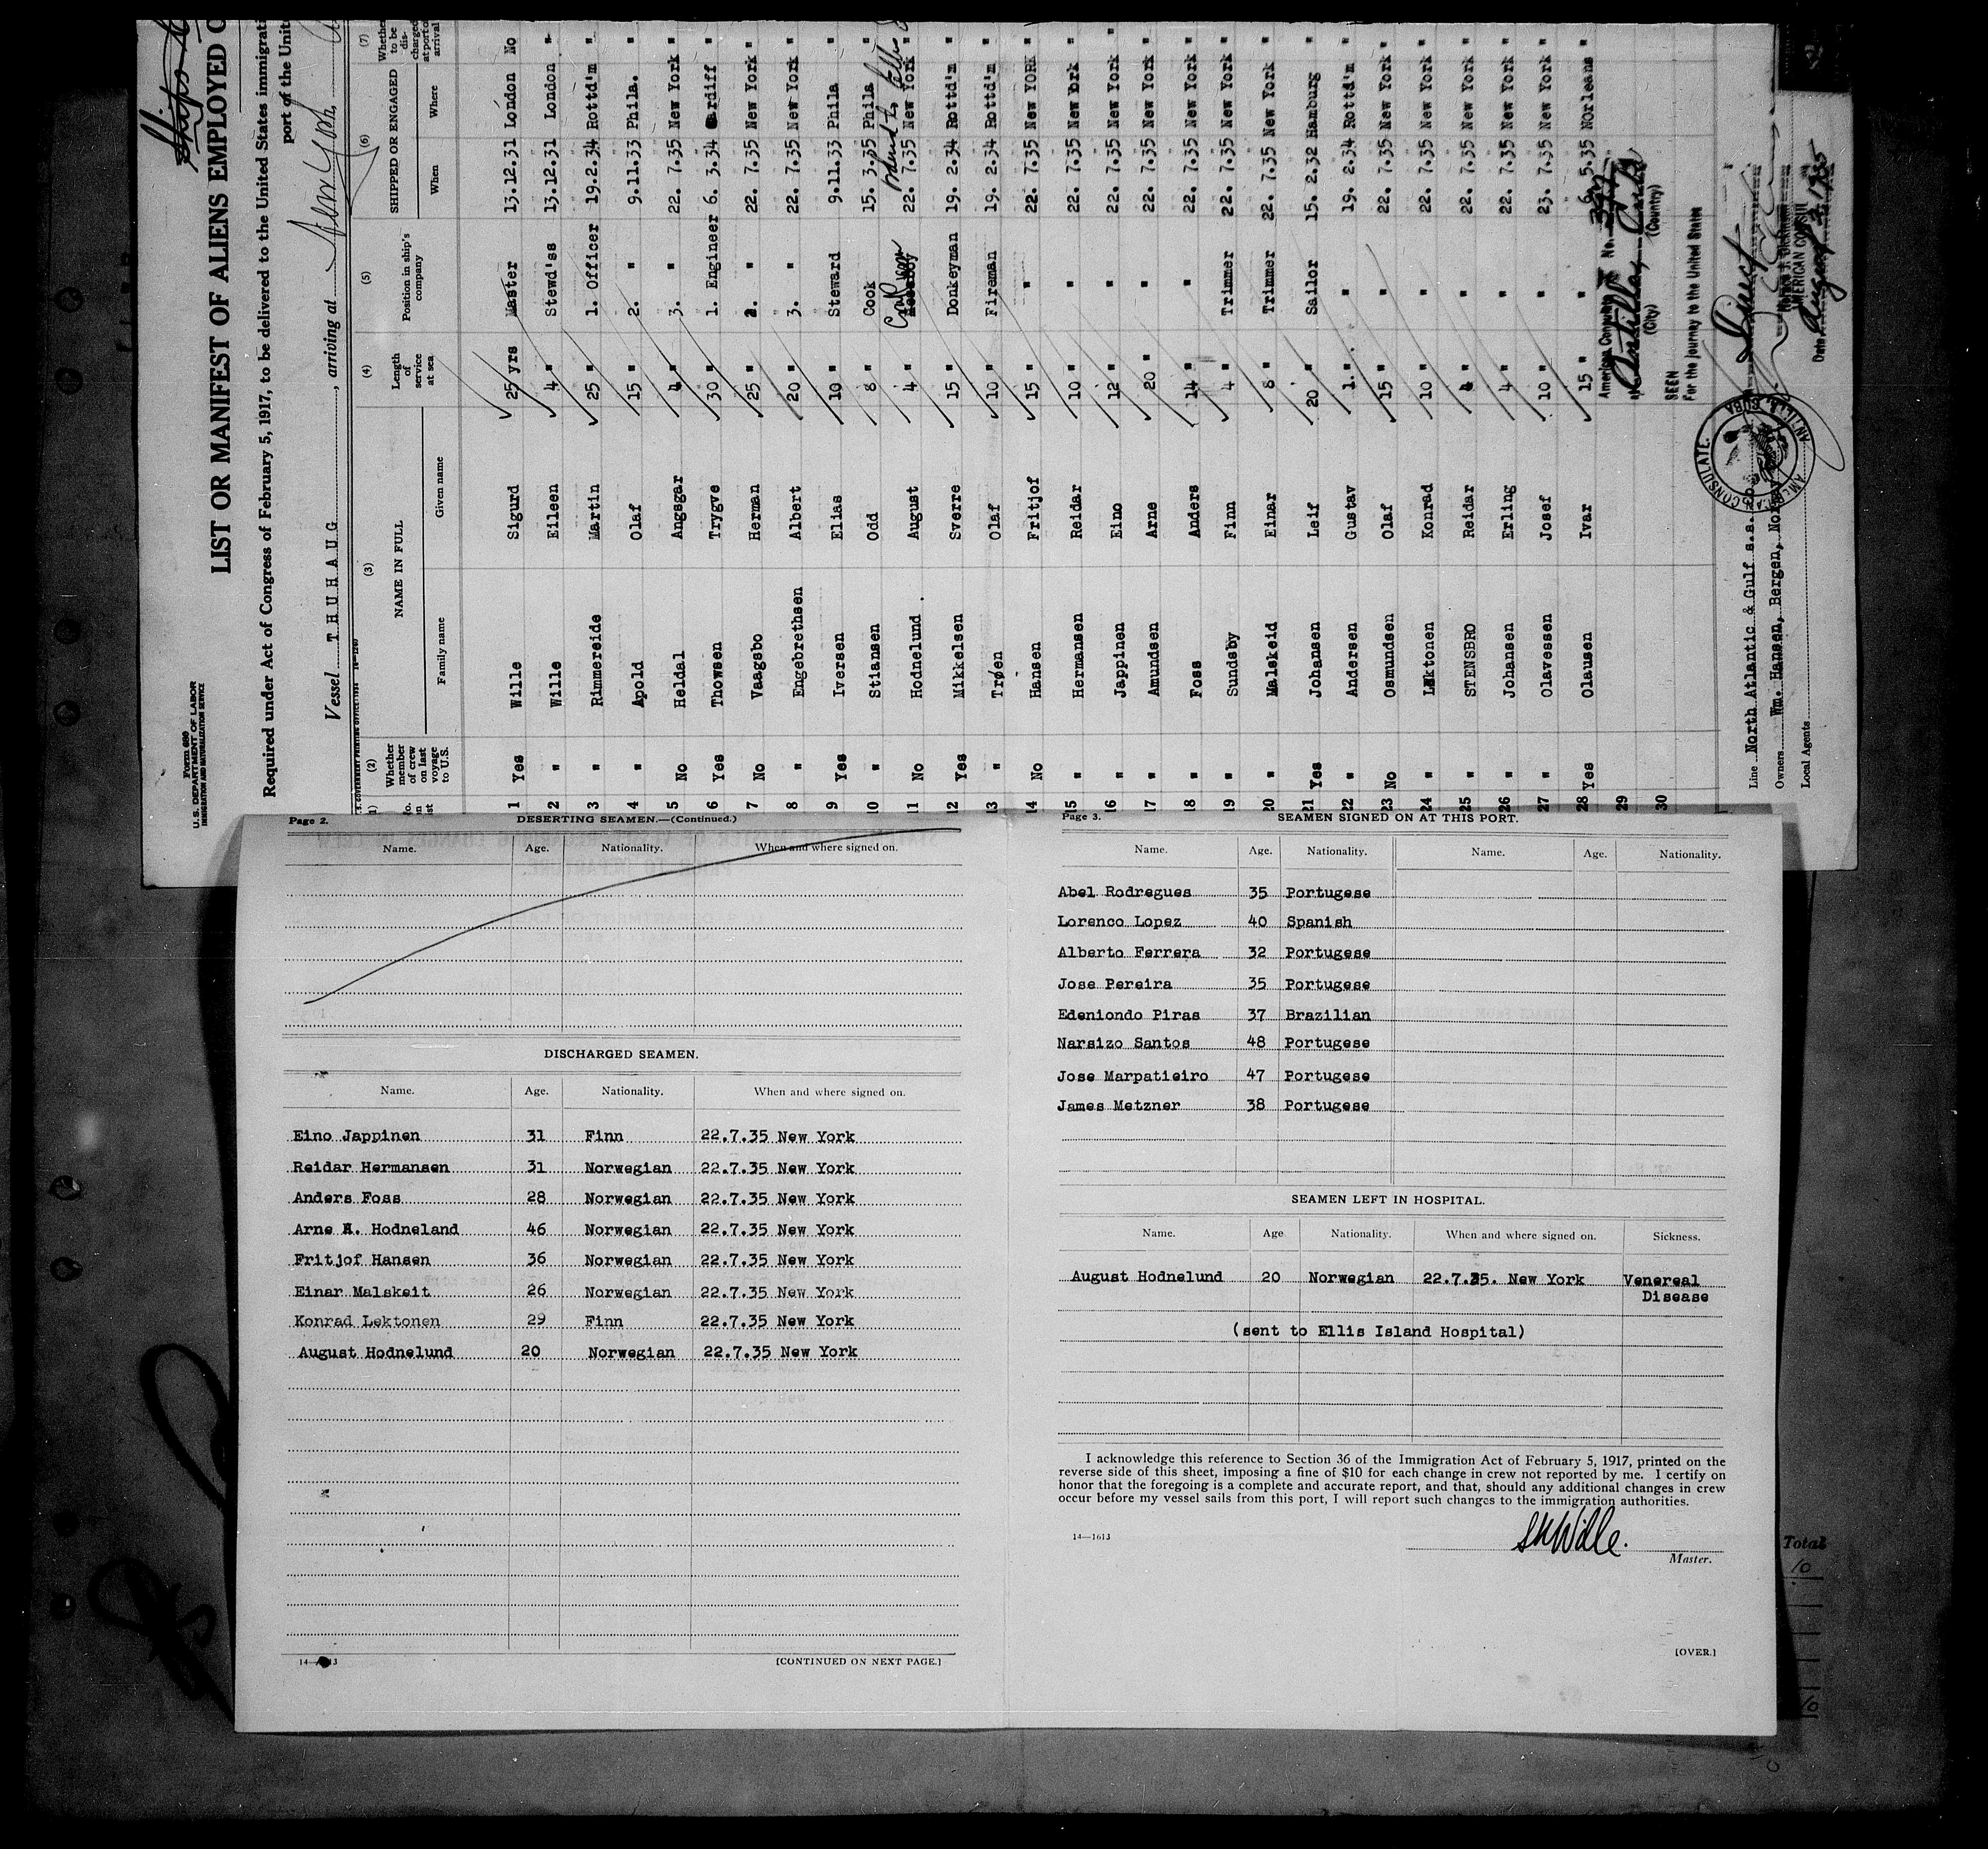 Form 680
U.S. DEPARTMENT OF LABOR
IMMIGRATION AND NATURALIZATION SERVICE
LIST OR MANIFEST OF ALIENS EMPLOYED
Required under Act of Congress of February 5, 1917, to be delivered to the United States immigrati
port of the Unit
Vessel THUHAUG, arriving at New York,
(2) (3) (4) (5) (6) (7)
Whether member of crew on last voyage to U.S. NAME IN FULL Family name Given name Length of service at sea Position in ship's company SHIPPED OR ENGAGED When Where Whether to be discharged at port of arrival
1 Yes Wille Sigurd 25 yrs Master 13.12.31 London No
2 " Wille Eileen 4 " Stewd'ss 13.12.31 London "
3 " Rimmereide Martin 25 " 1. Officer 19.2.34 Rottd'm "
4 " Apold Olaf 15 " 2. " 9.11.33 Phila. "
5 No Heldal Angsgar 4 " 3. " 22. 7.35 New York "
6 Yes Thowsen Trygve 30 " 1. Engineer 6. 3.34 Cardiff "
7 No Vaagsbo Herman 25 " 2. " 22. 7.35 New York "
8 " Engebrethsen Albert 20 " 3. " 22. 7.35 New York "
9 Yes Iversen Elias 10 " Steward 9.11.33 Phila "
10 " Stiansen Odd 8 " Cook 15. 3.35 Phila "
11 No Hodnelund August 4 " 22. 7.35 New York "
12 Yes Mikkelsen Sverre 15 " Donkeyman 19. 2.34 Rottd'm "
13 " Trøen Olaf 10 " Fireman 19. 2.34 Rottd'm "
14 No Hansen Fritjof 15 " " 22. 7.35 New YORK "
15 " Hermansen Reidar 10 " " 22. 7.35 New York "
16 " Jeppinen Eino 12 " " 22. 7.35 New York "
17 " Amundsen Arne 20 " " 22. 7.35 New York "
18 " Foss Anders 14 " " 22. 7.35 New York "
19 " Sundsby Finn 4 " Trimmer 22. 7.35 New York "
20 " Malskeid Einar 8 " Trimmer 22. 7.35 New York "
21 Yes Johansen Leif 20 " Sailor 15. 2.32 Hamburg "
22 " Andersen Gustav 1. " " 19. 2.34 Rottd'm "
23 No Osmundsen Olaf 15 " " 22. 7.35 New York "
24 " Lektonen Konrad 10 " " 22. 7.35 New York "
25 " STENSBRO Reidar 4 " " 22. 7.35 New York "
26 " Johansen Erling 4 " " 22. 7.35 New York "
27 " Olavessen Josef 10 " " 23. 7.35 New York "
28 Yes Olausen Ivar 15 " " 5.35 NOrleans "
29
30
American Consulate No.
Antilla, Cuba
(City) (Country)
SEEN
For the journey to the United States
Direct
AMERICAN CONSUL
Date August
AMERICAN CONSULATE. ANTILLA, CUBA
Line North Atlantic & Gulf s.s.
Owners Wm. Hansen, Bergen, Norway
Local Agents
Page 2. DESERTING SEAMEN.—(Continued.)
Name. Age. Nationality. When and where signed on.
DISCHARGED SEAMEN.
Name. Age. Nationality. When and where signed on.
Eino Jappinen 31 Finn 22.7.35 New York
Reidar Hermansen 31 Norwegian 22.7.35 New York
Anders Foss 28 Norwegian 22.7.35 New York
Arne A. Hodneland 46 Norwegian 22.7.35 New York
Fritjof Hansen 36 Norwegian 22.7.35 New York
Einar Malskeit 26 Norwegian 22.7.35 New York
Konrad Lektonen 29 Finn 22.7.35 New York
August Hodnelund 20 Norwegian 22.7.35 New York
[CONTINUED ON NEXT PAGE.]
Page 3. SEAMEN SIGNED ON AT THIS PORT.
Name. Age. Nationality. Name. Age. Nationality.
Abel Rodregues 35 Portugese
Lorenco Lopez 40 Spanish
Alberto Ferrera 32 Portugese
Jose Pereira 35 Portugese
Edeniondo Piras 37 Brazilian
Narsizo Santos 48 Portugese
Jose Marpatieiro 47 Portugese
James Metzner 38 Portugese
SEAMEN LEFT IN HOSPITAL.
Name. Age Nationality. When and where signed on. Sickness.
August Hodnelund 20 Norwegian 22.7.35. New York Venereal
Disease
(sent to Ellis Island Hospital)
I acknowledge this reference to Section 36 of the Immigration Act of February 5, 1917, printed on the
reverse side of this sheet, imposing a fine of $10 for each change in crew not reported by me. I certify on
honor that the foregoing is a complete and accurate report, and that, should any additional changes in crew
occur before my vessel sails from this port, I will report such changes to the immigration authorities.
14—1613
SNWille.
Master.
[OVER.]
Total
10